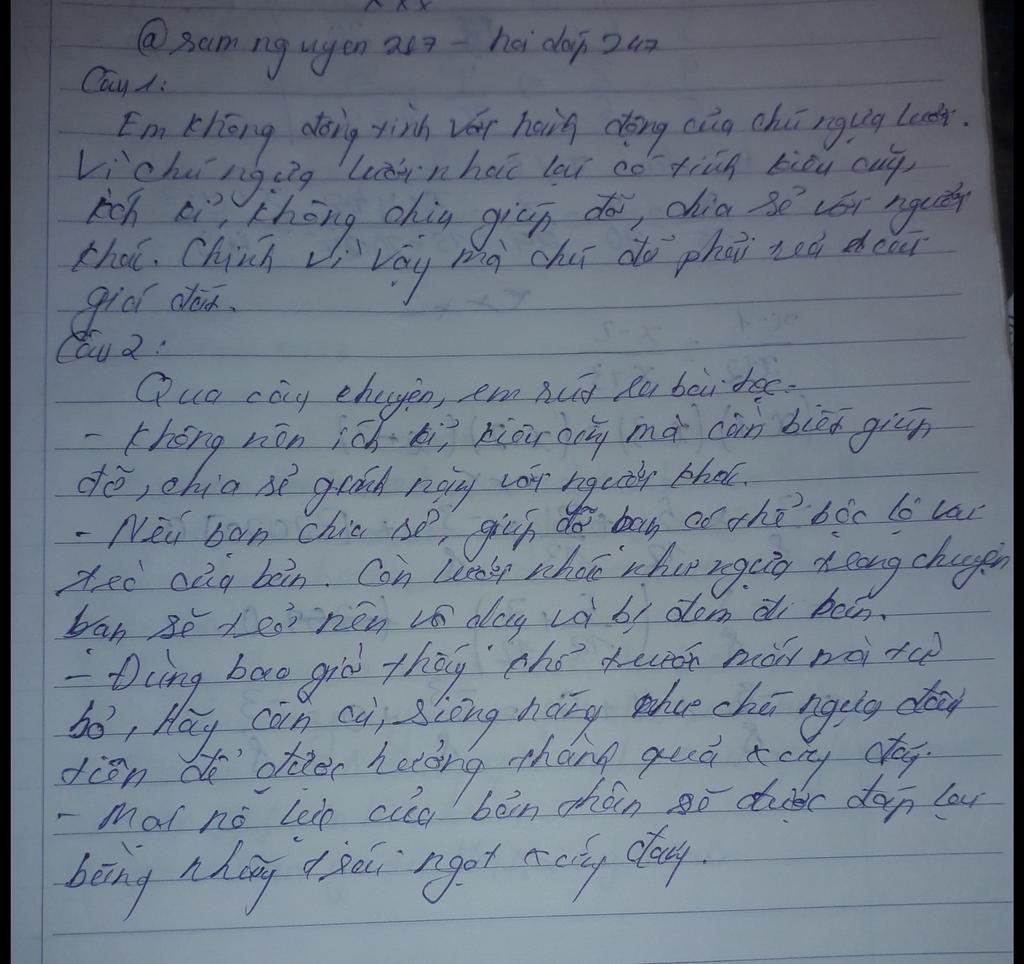 @sam nguyen 247 - hoi dap 247
Câu 1:
Em không đồng tình với hành động của chú ngựa lười.
Vì chú ngựa lười nhác lại có tính kiêu căng,
ích kỉ, không chịu giúp đỡ, chia sẻ với người
khác. Chính vì vậy mà chú đã phải trả cái
giá đắt.
Câu 2:
Qua câu chuyện, em rút ra bài học:
- Không nên ích kỉ, kiêu căng mà cần biết giúp
đỡ, chia sẻ gánh nặng với người khác.
- Nếu bạn chia sẻ, giúp đỡ bạn có thể bộc lộ vai
trò của bản. Còn lười nhác như ngựa trong chuyện
bạn sẽ trở nên vô dụng và bị đem đi bán.
- Đừng bao giờ thấy khó trước mắt mà từ
bỏ, Hãy cần cù, siêng năng như chú ngựa đầu
tiên để được hưởng thành quả xứng đáng.
- Mọi nỗ lực của bản thân sẽ được đáp lại
bằng những trái ngọt xứng đáng.